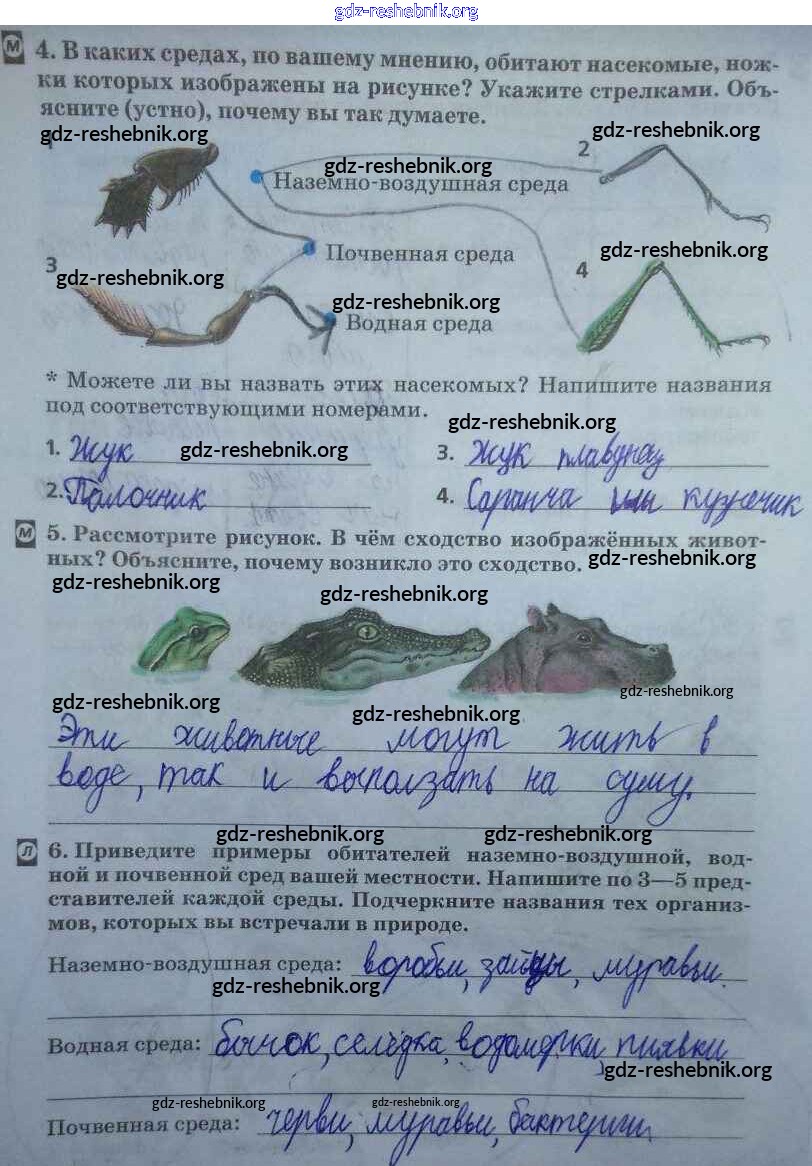 gdz-reshebnik.org
М 4. В каких средах, по вашему мнению, обитают насекомые, нож-
ки которых изображены на рисунке? Укажите стрелками. Объ-
ясните (устно), почему вы так думаете.
gdz-reshebnik.org gdz-reshebnik.org
1 gdz-reshebnik.org 2
Наземно-воздушная среда
Почвенная среда gdz-reshebnik.org
3 gdz-reshebnik.org 4
gdz-reshebnik.org
Водная среда
* Можете ли вы назвать этих насекомых? Напишите названия
под соответствующими номерами.
gdz-reshebnik.org
1. Жук gdz-reshebnik.org 3. Жук плавунец
2. Палочник 4. Саранча или кузнечик
М 5. Рассмотрите рисунок. В чём сходство изображённых живот-
ных? Объясните, почему возникло это сходство. gdz-reshebnik.org
gdz-reshebnik.org gdz-reshebnik.org
gdz-reshebnik.org
gdz-reshebnik.org gdz-reshebnik.org
Эти животные могут жить в
воде, так и выползать на сушу.
gdz-reshebnik.org gdz-reshebnik.org
Л 6. Приведите примеры обитателей наземно-воздушной, вод-
ной и почвенной сред вашей местности. Напишите по 3—5 пред-
ставителей каждой среды. Подчеркните названия тех организ-
мов, которых вы встречали в природе.
Наземно-воздушная среда: воробьи, зайцы, муравьи.
gdz-reshebnik.org
Водная среда: бычок, селёдка, водомерки, пиявки
gdz-reshebnik.org
gdz-reshebnik.org gdz-reshebnik.org
Почвенная среда: черви, муравьи, бактерии.